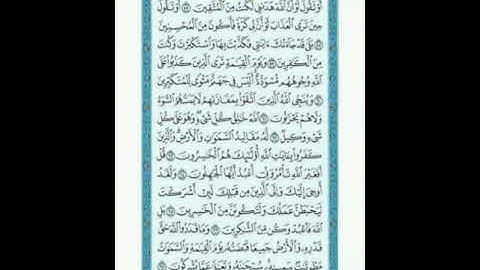 أَوْ تَقُولَ لَوْ أَنَّ اللَّهَ هَدَىٰنِي لَكُنتُ مِنَ الْمُتَّقِينَ ٥٧ أَوْ تَقُولَ
حِينَ تَرَى الْعَذَابَ لَوْ أَنَّ لِي كَرَّةً فَأَكُونَ مِنَ الْمُحْسِنِينَ
٥٨ بَلَىٰ قَدْ جَآءَتْكَ ءَايَٰتِي فَكَذَّبْتَ بِهَا وَاسْتَكْبَرْتَ وَكُنتَ
مِنَ الْكَٰفِرِينَ ٥٩ وَيَوْمَ الْقِيَٰمَةِ تَرَى الَّذِينَ كَذَبُوا۟ عَلَى
اللَّهِ وُجُوهُهُم مُّسْوَدَّةٌ أَلَيْسَ فِي جَهَنَّمَ مَثْوًى لِّلْمُتَكَبِّرِينَ
٦٠ وَيُنَجِّي اللَّهُ الَّذِينَ اتَّقَوْا۟ بِمَفَازَتِهِمْ لَا يَمَسُّهُمُ السُّوٓءُ
وَلَا هُمْ يَحْزَنُونَ ٦١ اللَّهُ خَٰلِقُ كُلِّ شَيْءٍ وَهُوَ عَلَىٰ كُلِّ
شَيْءٍ وَكِيلٌ ٦٢ لَّهُ مَقَالِيدُ السَّمَٰوَٰتِ وَالْأَرْضِ وَالَّذِينَ
كَفَرُوا۟ بِـَٔايَٰتِ اللَّهِ أُو۟لَٰٓئِكَ هُمُ الْخَٰسِرُونَ ٦٣ قُلْ
أَفَغَيْرَ اللَّهِ تَأْمُرُوٓنِّي أَعْبُدُ أَيُّهَا الْجَٰهِلُونَ ٦٤ وَلَقَدْ
أُوحِيَ إِلَيْكَ وَإِلَى الَّذِينَ مِن قَبْلِكَ لَئِنْ أَشْرَكْتَ
لَيَحْبَطَنَّ عَمَلُكَ وَلَتَكُونَنَّ مِنَ الْخَٰسِرِينَ ٦٥ بَلِ
اللَّهَ فَاعْبُدْ وَكُن مِّنَ الشَّٰكِرِينَ ٦٦ وَمَا قَدَرُوا۟ اللَّهَ حَقَّ
قَدْرِهِ وَالْأَرْضُ جَمِيعًا قَبْضَتُهُ يَوْمَ الْقِيَٰمَةِ وَالسَّمَٰوَٰتُ
مَطْوِيَّٰتٌ بِيَمِينِهِ سُبْحَٰنَهُ وَتَعَٰلَىٰ عَمَّا يُشْرِكُونَ ٦٧